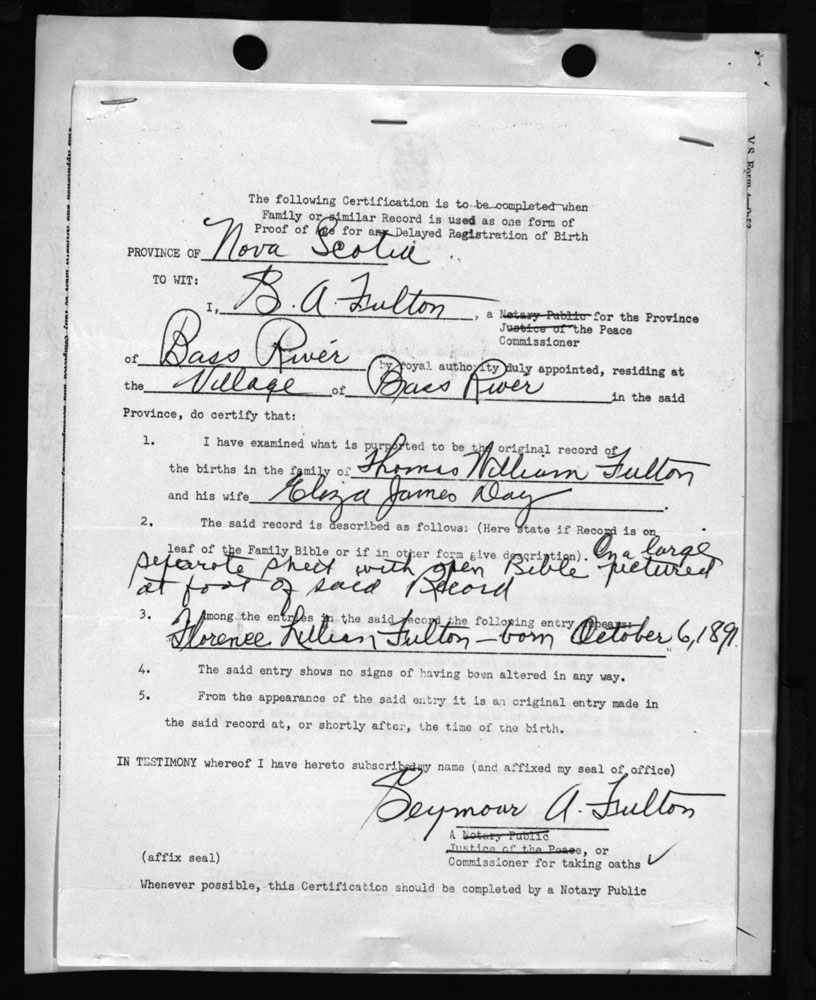 The following Certification is to be completed when
Family or similar Record is used as one form of
Proof of Age for any Delayed Registration of Birth
PROVINCE OF Nova Scotia
TO WIT:
I, B. A. Fulton, a Notary Public for the Province
Justice of the Peace
Commissioner
of Bass River by royal authority duly appointed, residing at
the Village of Bass River in the said
Province, do certify that:
1. I have examined what is purported to be the original record of
the births in the family of Thomas William Fulton
and his wife Eliza James Day.
2. The said record is described as follows: (Here state if Record is on
leaf of the Family Bible or if in other form give description). On a large
separate sheet with open Bible pictured
at foot of said Record
3. Among the entries in the said record the following entry appears:
Florence Lillian Fulton - born October 6, 1891.
4. The said entry shows no signs of having been altered in any way.
5. From the appearance of the said entry it is an original entry made in
the said record at, or shortly after, the time of the birth.
IN TESTIMONY whereof I have hereto subscribed my name (and affixed my seal of office)
Seymour A. Fulton
A Notary Public
Justice of the Peace, or
(affix seal) Commissioner for taking oaths ✓
Whenever possible, this Certification should be completed by a Notary Public
V.S. Form